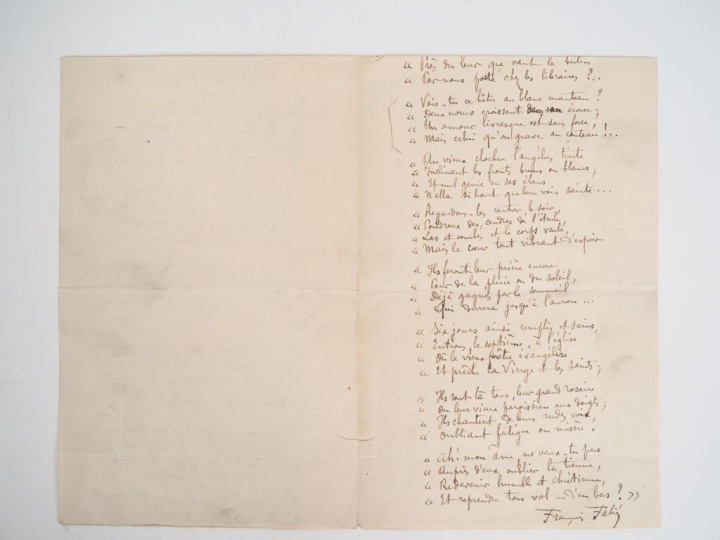 « Près du leur que vaut le butin
« Par nous porté chez les libraires ?..
« Vois-tu ce hêtre au blanc manteau ?
« Deux noms croissent dans son écorce ;
« Un amour livresque est sans force,
« Mais celui qu'on grave au couteau !...
« Au vieux clocher l'angélus tinte
« Inclinant les fronts bruns ou blancs ;
« Et nul génie en ses élans
« N'alla si haut que leur voix sainte...
« Regardons-les rentrer le soir,
« Poudreux des cendres de l'étule,
« Las et courbés et le corps
« Mais le cœur tout vibrant d'espoir
« Ils feront leur prière encore
« Pour de la pluie ou du soleil,
« Déjà gagnés par le sommeil
« Qui durera jusqu'à l'aurore...
« Six jours ainsi remplis et sains,
« Entrons, le septième, à l'église
« Où le vieux prêtre évangélise
« Et prêche la Vierge et les saints ;
« Ils sont là tous, leur grand rosaire
« Ou leur vieux paroissien aux doigts ;
« Ils chantent de leurs rudes voix,
« Oubliant fatigue ou misère.
« Ah ! mon âme, ne veux-tu pas
« Auprès d'eux oublier la tienne,
« Redevenir humble et chrétienne,
« Et reprendre ton vol – d'en bas ? »
François Fabié